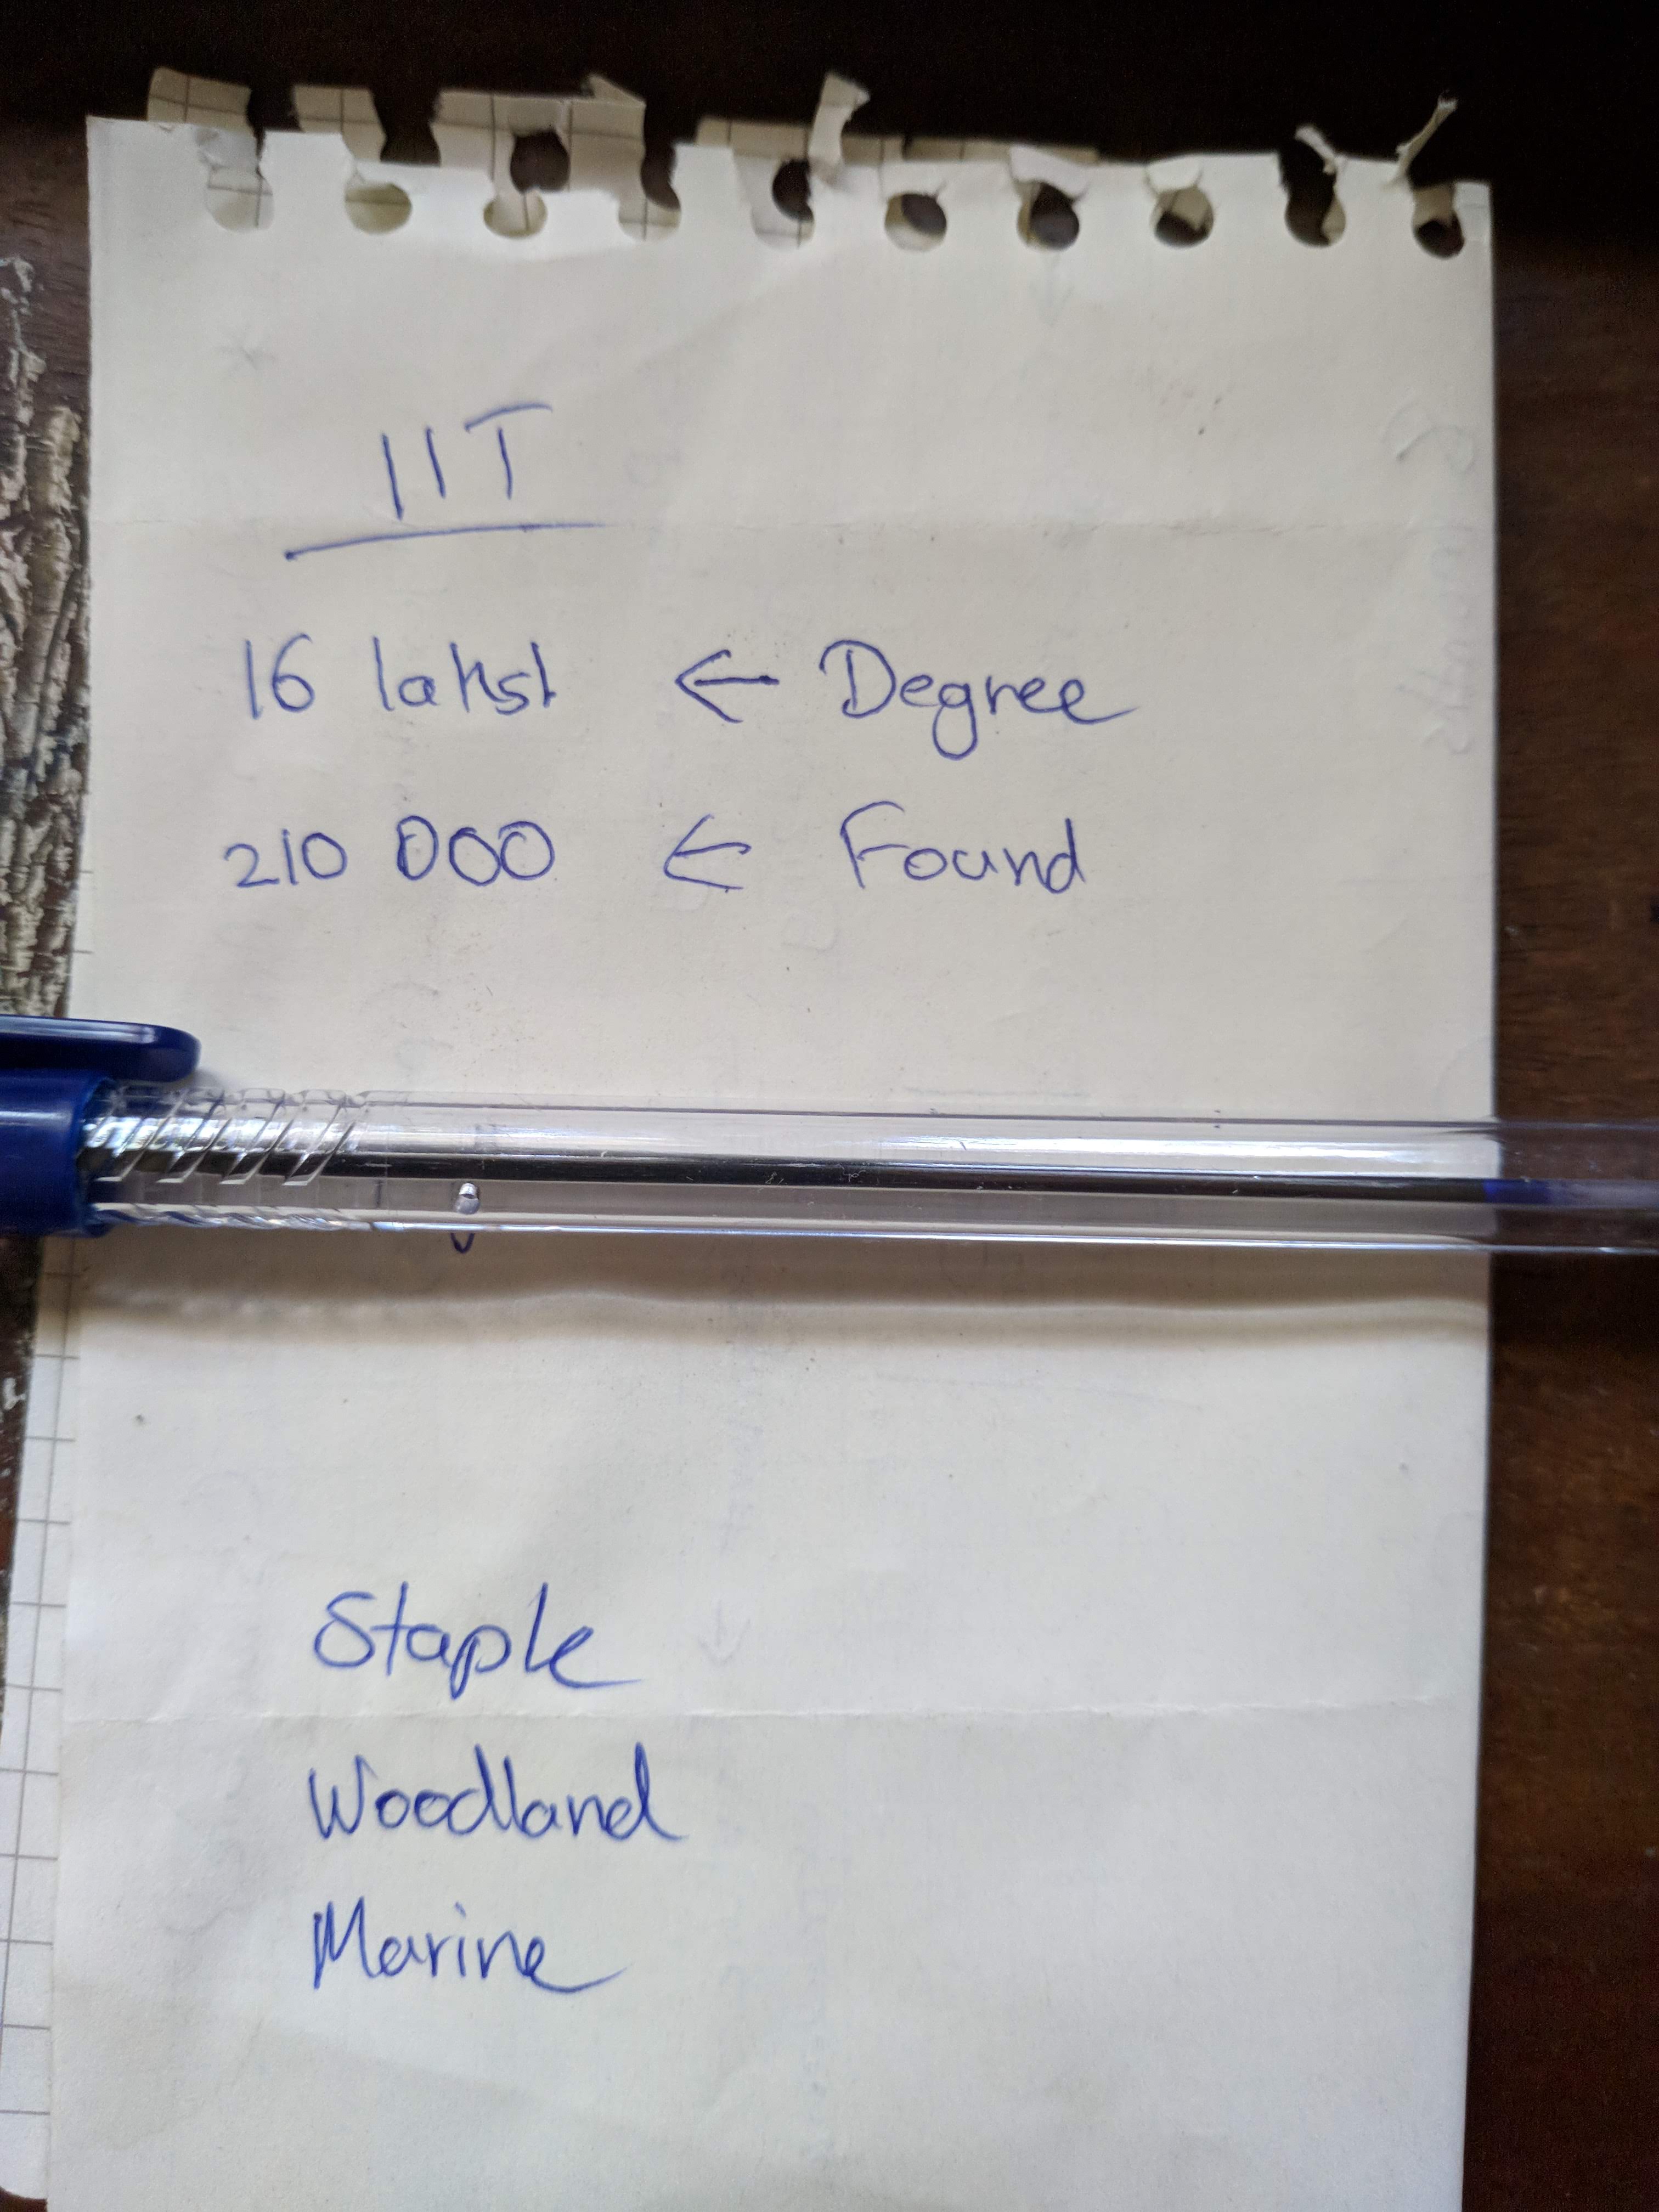 IIT
16 lakhs ← Degree
210 000 ← Found
Staple
Woodland
Marine